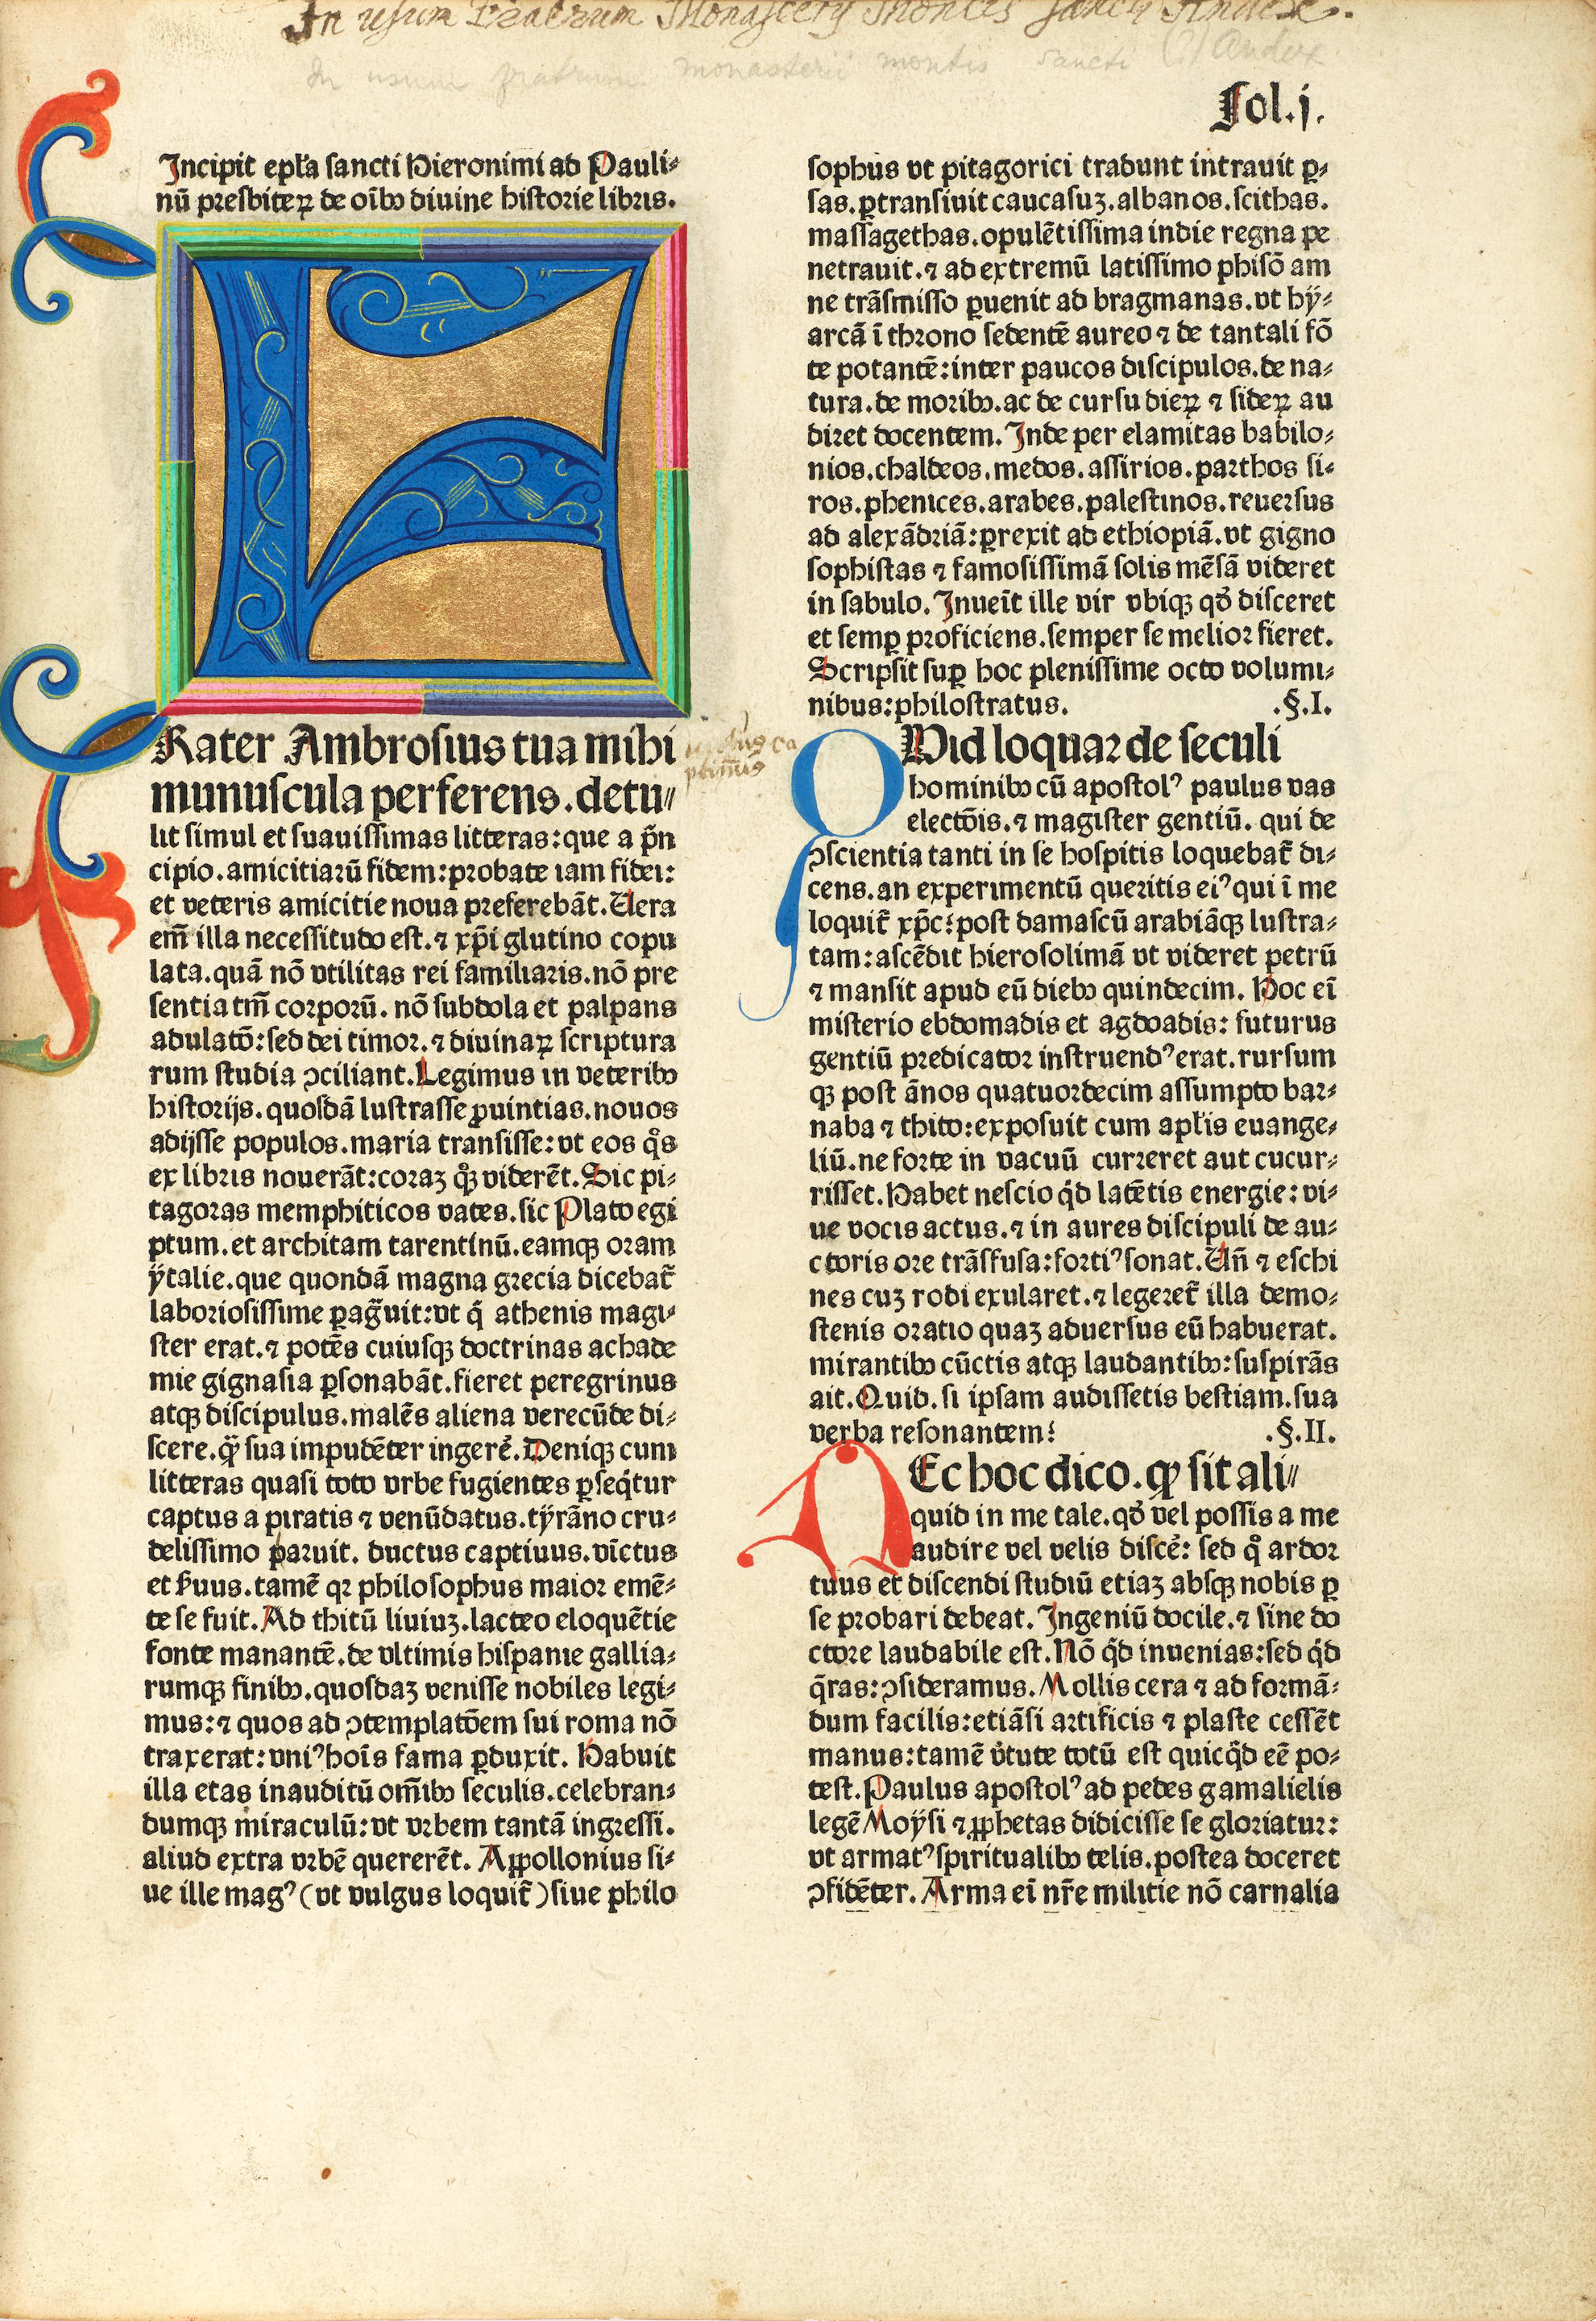 In usum Fratrum Monastery Montis sancti Andex.
In usum fratrum monasterii montis sancti (?) Andex
Fol.j.
Incipit epl̄a sancti Hieronimi ad Pauli⸗
nū presbiteꝝ de oībꝰ diuine historie libris.
FRater Ambrosius tua mihi
munuscula perferens.detu⸗
lit simul et suauissimas litteras:que a pn̄
cipio.amicitiarū fidem:probate iam fidei:
et veteris amicitie noua preferebāt.Uera
em̄ illa necessitudo est.⁊ xp̄i glutino copu
lata.quā nō vtilitas rei familiaris.nō pre
sentia tm̄ corporū.nō subdola et palpans
adulatō:sed dei timor.⁊ diuinaꝝ scriptura
rum studia ↄciliant.Legimus in veteribꝰ
historijs.quosdā lustrasse ꝓuintias.nouos
adijsse populos.maria transisse:vt eos qͦs
ex libris nouerāt:coraꝫ qͦꝫ viderēt.Sic pi⸗
tagoras memphiticos vates.sic Plato egi
ptum.et architam tarentinū.eamqꝫ oram
ÿtalie.que quondā magna grecia dicebat᷑
laboriosissime ꝑagᷓuit:vt qͥ athenis magi⸗
ster erat.⁊ potēs cuiusqꝫ doctrinas achade
mie gignasia ꝑsonabāt.fieret peregrinus
atqꝫ discipulus.malēs aliena verecūde di⸗
scere.qͣꝫ sua impudēter ingerē.Deniqꝫ cum
litteras quasi toto vrbe fugientes ꝑseqͥtur
captus a piratis ⁊ venūdatus.tÿrāno cru⸗
delissimo paruit. ductus captiuus.vīctus
et ẜuus.tamē qꝛ philosophus maior emē⸗
te se fuit.Ad thitū liuiuꝫ.lacteo eloquētie
fonte manantē.de vltimis hispanie gallia⸗
rumqꝫ finibꝰ.quosdaꝫ venisse nobiles legi⸗
mus:⁊ quos ad ↄtemplatōem sui roma nō
traxerat:vniꝰ hoīs fama ꝑduxit. Habuit
illa etas inauditū om̄ibꝰ seculis.celebran⸗
dumqꝫ miraculū:vt vrbem tantā ingressi.
aliud extra vrbē quererēt. Appollonius si⸗
ue ille magꝰ (vt vulgus loquit᷑) siue philo
sophus vt pitagorici tradunt intrauit ꝑ⸗
sas.ꝑtransiuit caucasuꝫ.albanos.scithas.
massagethas.opulētissima indie regna pe
netrauit.⁊ ad extremū latissimo phisō am
ne trāsmisso ꝑuenit ad bragmanas.vt hÿ⸗
arcā ī throno sedentē aureo ⁊ de tantali fō
te potantē:inter paucos discipulos.de na⸗
tura.de moribꝰ.ac de cursu dieꝝ ⁊ sideꝝ au
diret docentem.Inde per elamitas babilo⸗
nios.chaldeos.medos.assirios.parthos si⸗
ros.phenices.arabes.palestinos.reuersus
ad alexādriā:ꝑrexit ad ethiopiā.vt gigno
sophistas ⁊ famosissimā solis mēsā videret
in sabulo.Inueīt ille vir vbiqꝫ qȯ disceret
et semꝑ proficiens.semper se melior fieret.
Scripsit suꝑ hoc plenissime octo volumi⸗
nibus:philostratus. .§.I.
QUid loquar de seculi
hominibꝰ cū apostolꝰ paulus vas
electōis.⁊ magister gentiū. qui de
ↄscientia tanti in se hospitis loquebat᷑ di⸗
cens.an experimentū queritis eiꝰ qui ī me
loquit᷑ xp̄c?post damascū arabiāqꝫ lustra⸗
tam:ascēdit hierosolimā vt videret petrū
⁊ mansit apud eū diebꝰ quindecim. Hoc eī
misterio ebdomadis et agdoadis: futurus
gentiū predicator instruendꝰ erat.rursum
qꝫ post ānos quatuordecim assumpto bar⸗
naba ⁊ thito:exposuit cum apl̄is euange⸗
liū.ne forte in vacuū curreret aut cucur⸗
risset.Habet nescio qͥd latētis energie: vi⸗
ue vocis actus.⁊ in aures discipuli de au⸗
ctoris ore trāsfusa:fortiꝰ sonat.Un̄ ⁊ eschi
nes cuꝫ rodi exularet.⁊ legeret᷑ illa demo⸗
stenis oratio quaꝫ aduersus eū habuerat.
mirantibꝰ cūctis atqꝫ laudantibꝰ:suspirās
ait.Quid.si ipsam audissetis bestiam.sua
verba resonantem? .§.II.
NEc hoc dico.ꝙ sit ali⸗
quid in me tale.qȯ vel possis a me
audire vel velis discē: sed qͦ ardor
tuus et discendi studiū etiaꝫ absqꝫ nobis ꝑ
se probari debeat. Ingeniū docile.⁊ sine do
ctore laudabile est.Nō qͥd inuenias:sed qͥd
qͣras:ↄsideramus.Mollis cera ⁊ ad formā⸗
dum facilis:etiāsi artificis ⁊ plaste cessēt
manus:tamē v̓tute totū est quicqͥd eē po⸗
test.Paulus apostolꝰ ad pedes gamalielis
legē Moÿsi ⁊ ꝓphetas didicisse se gloriatur:
vt armatꝰ spiritualibꝰ telis.postea doceret
ↄfidēter.Arma eī nr̄e militie nō carnalia